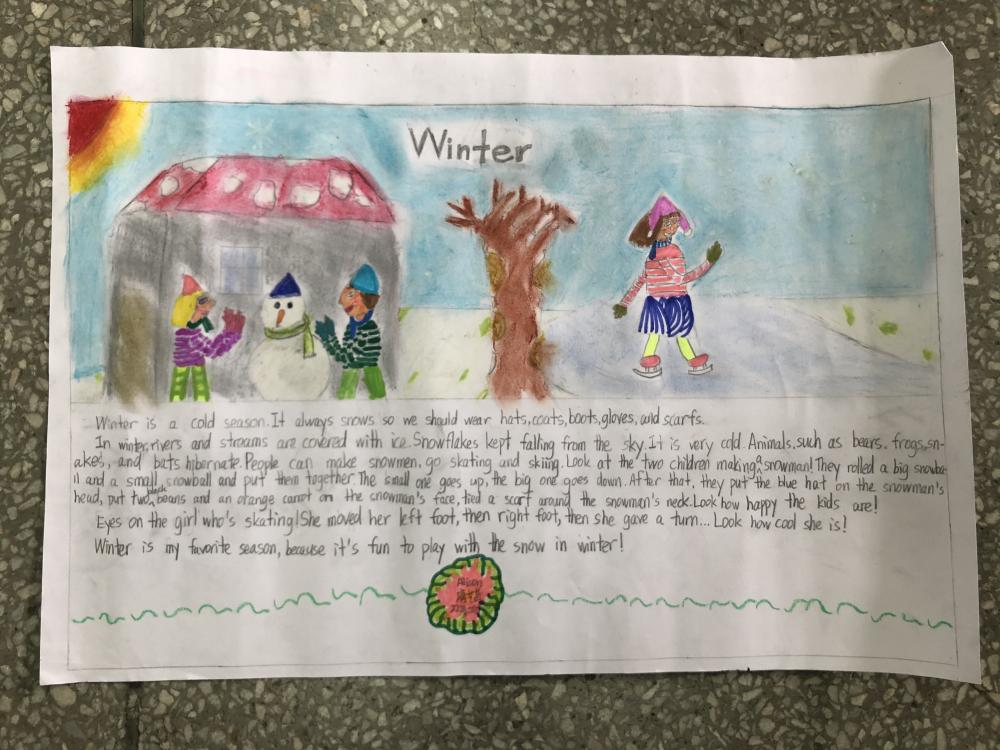 Winter
Winter is a cold season. It always snows so we should wear hats, coats, boots, gloves, and scarfs.
In winter, rivers and streams are covered with ice. Snowflakes kept falling from the sky. It is very cold. Animals, such as bears, frogs, sn-
akes, and bats hibernate. People can make snowmen, go skating and skiing. Look at the two children making a snowman! They rolled a big snowba-
ll and a small snowball and put them together. The small one goes up, the big one goes down. After that, they put the blue hat on the snowman's
head, put two black beans and an orange carrot on the snowman's face, tied a scarf around the snowman's neck. Look how happy the kids are!
Eyes on the girl who's skating! She moved her left foot, then right foot, then she gave a turn... Look how cool she is!
Winter is my favorite season, because it's fun to play with the snow in winter!
Alison